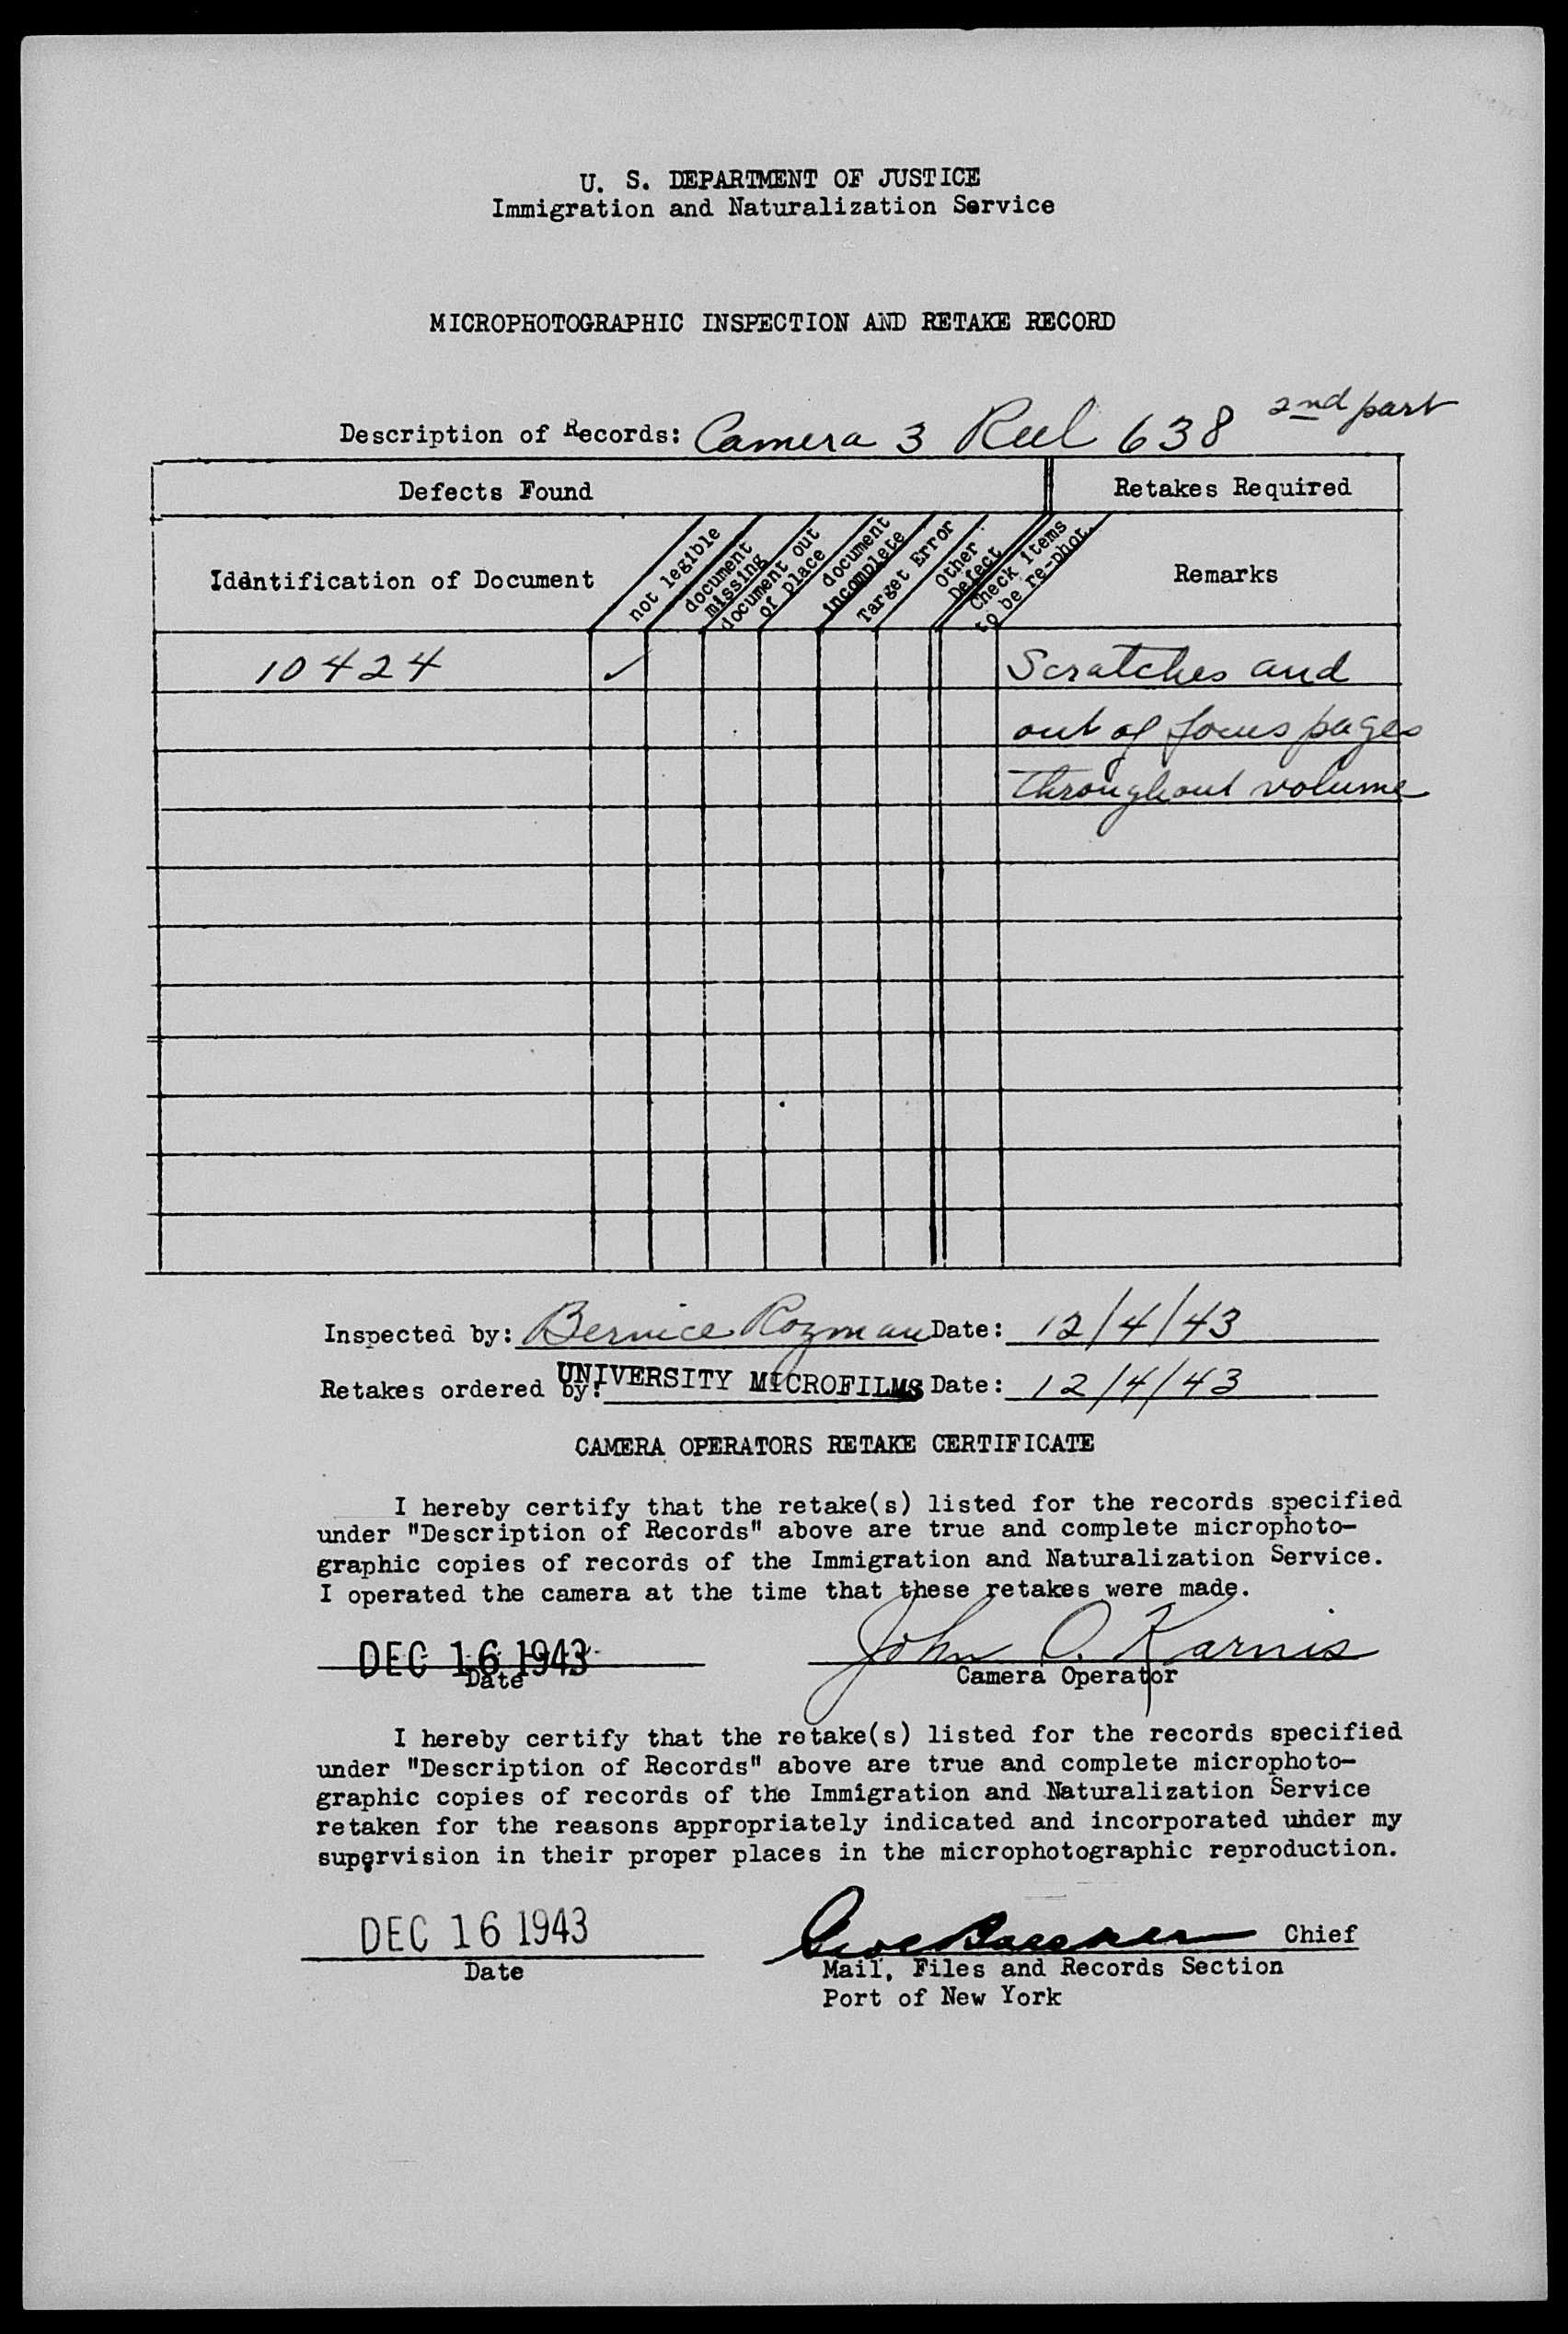 U. S. DEPARTMENT OF JUSTICE
Immigration and Naturalization Service
MICROPHOTOGRAPHIC INSPECTION AND RETAKE RECORD
Description of Records: Camera 3 Reel 638 2nd part
Defects Found
Retakes Required
Identification of Document
not legible
document missing
document out of place
document incomplete
Target Error
Other Defect
Check items to be re-phot.
Remarks
10424 ✓ Scratches and
out of focus pages
throughout volume
Inspected by: Bernice Rozman Date: 12/4/43
Retakes ordered by: UNIVERSITY MICROFILMS Date: 12/4/43
CAMERA OPERATORS RETAKE CERTIFICATE
I hereby certify that the retake(s) listed for the records specified
under "Description of Records" above are true and complete microphoto-
graphic copies of records of the Immigration and Naturalization Service.
I operated the camera at the time that these retakes were made.
DEC 16 1943 John O. Karnis
Date Camera Operator
I hereby certify that the retake(s) listed for the records specified
under "Description of Records" above are true and complete microphoto-
graphic copies of records of the Immigration and Naturalization Service
retaken for the reasons appropriately indicated and incorporated under my
supervision in their proper places in the microphotographic reproduction.
DEC 16 1943 Chief
Date Mail, Files and Records Section
Port of New York